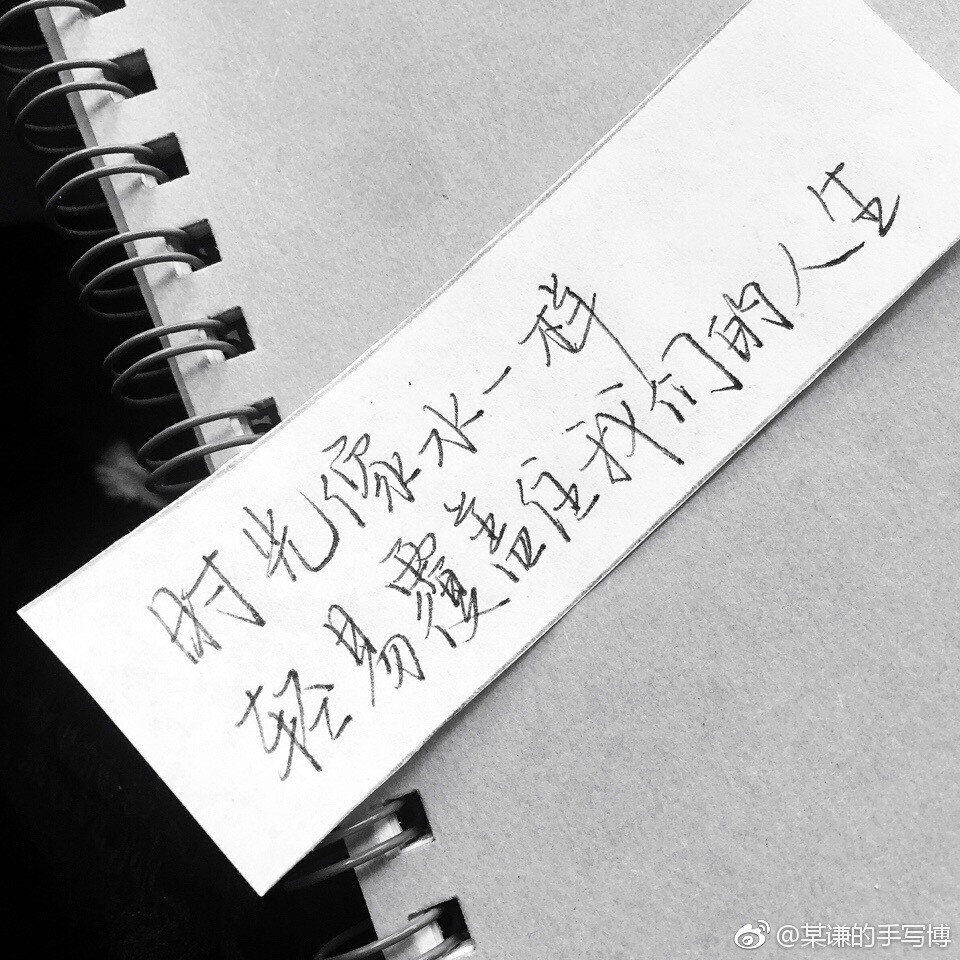 时光像水一样
轻易覆盖住我们的人生
@某谦的手写博